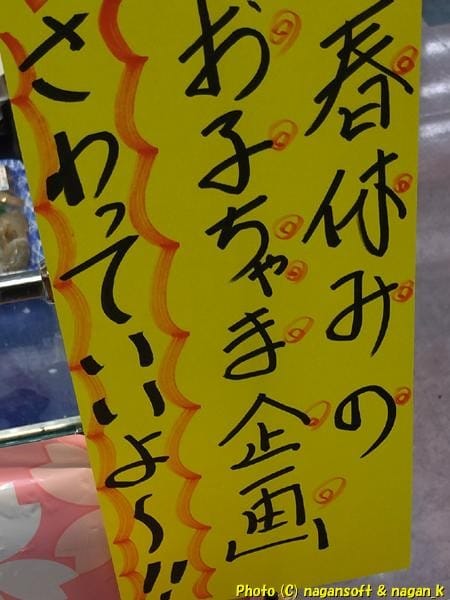 春休みの
お子ちゃま企画
さわっていいよ～!!
Photo (C) nagansoft & nagan_k